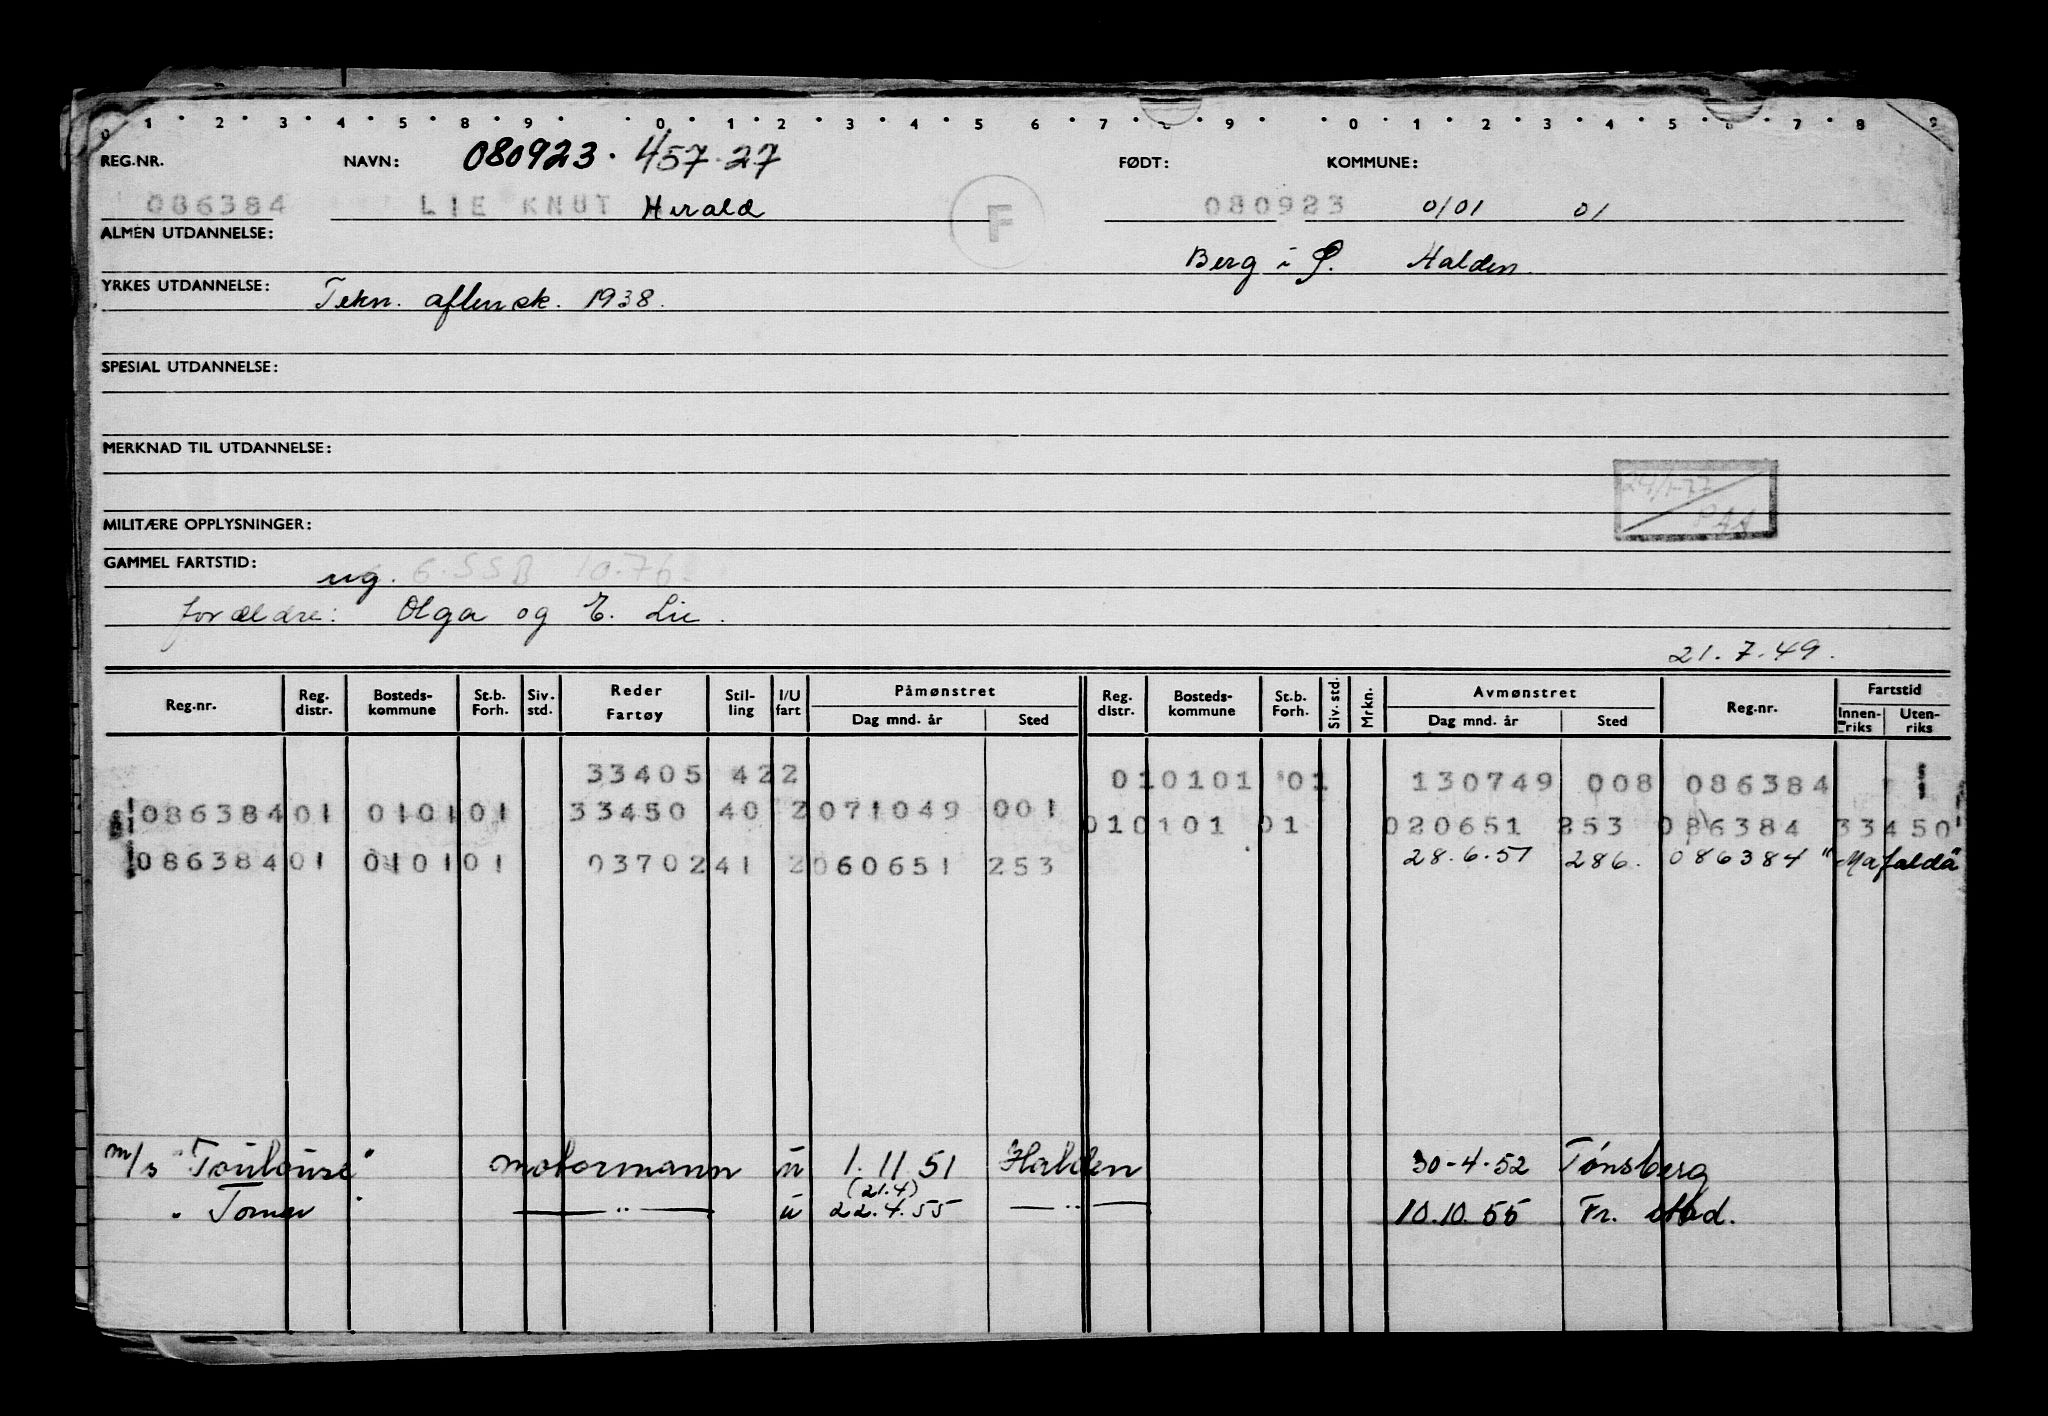 0 1 2 3 4 5 8 9 0 1 2 3 4 5 6 7 8 9 0 1 2 3 4 5 6 7 8 9
REG.NR. NAVN: 080923. 457.27 FØDT: KOMMUNE:
086384 LIE KNUT Herald F 080923 0101 01
ALMEN UTDANNELSE: Berg i Ø. Halden.
YRKES UTDANNELSE: Tekn. aftensk. 1938.
SPESIAL UTDANNELSE:
MERKNAD TIL UTDANNELSE:
MILITÆRE OPPLYSNINGER:
GAMMEL FARTSTID: ug. 6.SSB 10.76.
forældre: Olga og E. Lie.
21.7.49.
Reg.nr. Reg. distr. Bosteds-kommune St.b. Forh. Siv. std. Reder Fartøy Stil-ling I/U fart Påmønstret Dag mnd. år Sted Reg. distr. Bosteds-kommune St.b. Forh. Siv. std. Mrkn. Avmønstret Dag mnd. år Sted Reg.nr. Fartstid Innen-riks Uten-riks
33405 422 010101 01 130749 008 086384
086384 01 0101 01 33450 40 2 071049 001 010101 01 020651 253 086384 33450
086384 01 0101 01 03702 41 2 060651 253 28.6.51 286. 086384 "Mafalda"
m/s "Toulouse" motormann u 1.11.51 Halden 30-4-52 Tønsberg
(21.4)
" Torner " — " — u 22.4.55 — " — 10.10.55 Fr. stad.